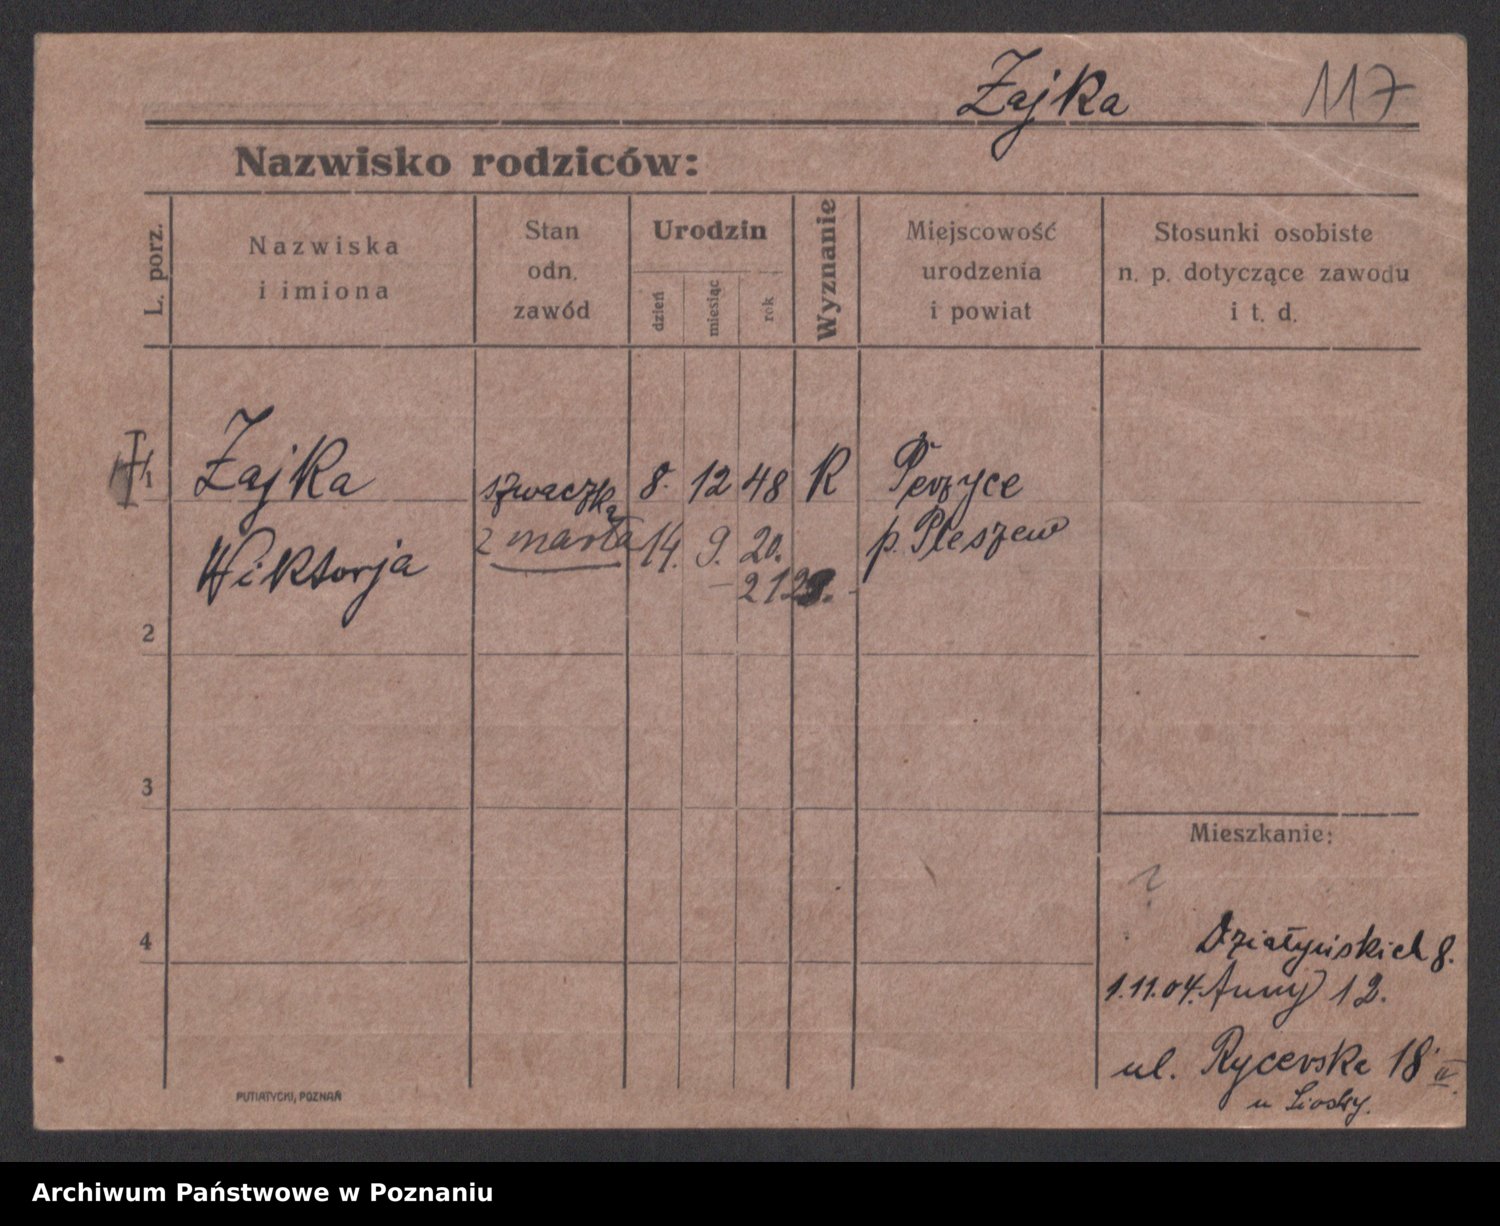 Zajka 117
Nazwisko rodziców:
L. porz.
Nazwiska
i imiona
Stan
odn.
zawód
Urodzin
dzień
miesiąc
rok
Wyznanie
Miejscowość
urodzenia
i powiat
Stosunki osobiste
n. p. dotyczące zawodu
i t. d.
1 Zajka szwaczka 8. 12 48 R Perzyce
Wiktorja zmarła 14. 9. 20. p. Pleszew
2
3
4
Mieszkanie:
?
Działyńskich 8.
1.11.04. Anny 12.
ul. Rycerska 18 II.
u Siostry.
PUTIATYCKI, POZNAŃ
Archiwum Państwowe w Poznaniu